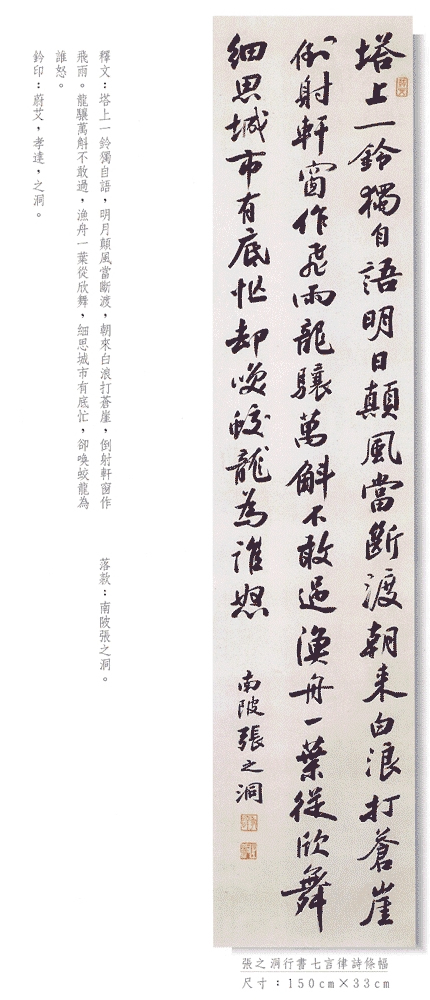 塔上一鈴獨自語明日顛風當斷渡朝来白浪打蒼崖
倒射軒窗作飛雨龍驤萬斛不敢過漁舟一葉從欣舞
细思城市有底忙却喚蛟龍為誰怒
南陂張之洞
釋文:塔上一鈴獨自語,明月顛風當斷渡,朝來白浪打蒼崖,倒射軒窗作
飛雨。龍驤萬斛不敢過,漁舟一葉從欣舞,細思城市有底忙,卻喚蛟龍為
誰怒。
落款:南陂張之洞。
鈐印:蔚艾,孝達,之洞。
張之洞行書七言律詩條幅
尺寸:150cm×33cm